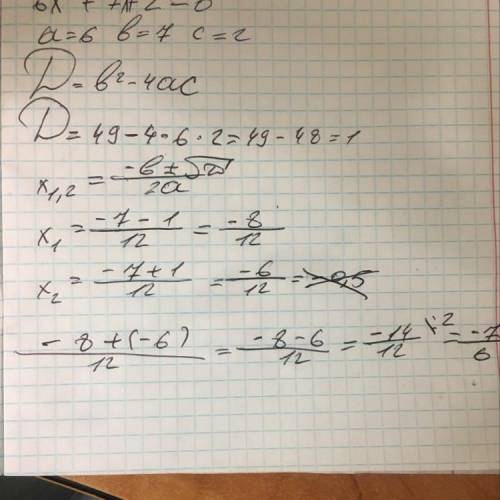 6x² + 7x + 2 = 0
a = 6 b = 7 c = 2
D = b² - 4ac
D = 49 - 4 · 6 · 2 = 49 - 48 = 1
x₁,₂ = (-b ± √D) / 2a
x₁ = (-7 - 1) / 12 = -8 / 12
x₂ = (-7 + 1) / 12 = -6 / 12 = -0,5
(-8 + (-6)) / 12 = (-8 - 6) / 12 = -14 / 12 \² = -7 / 6